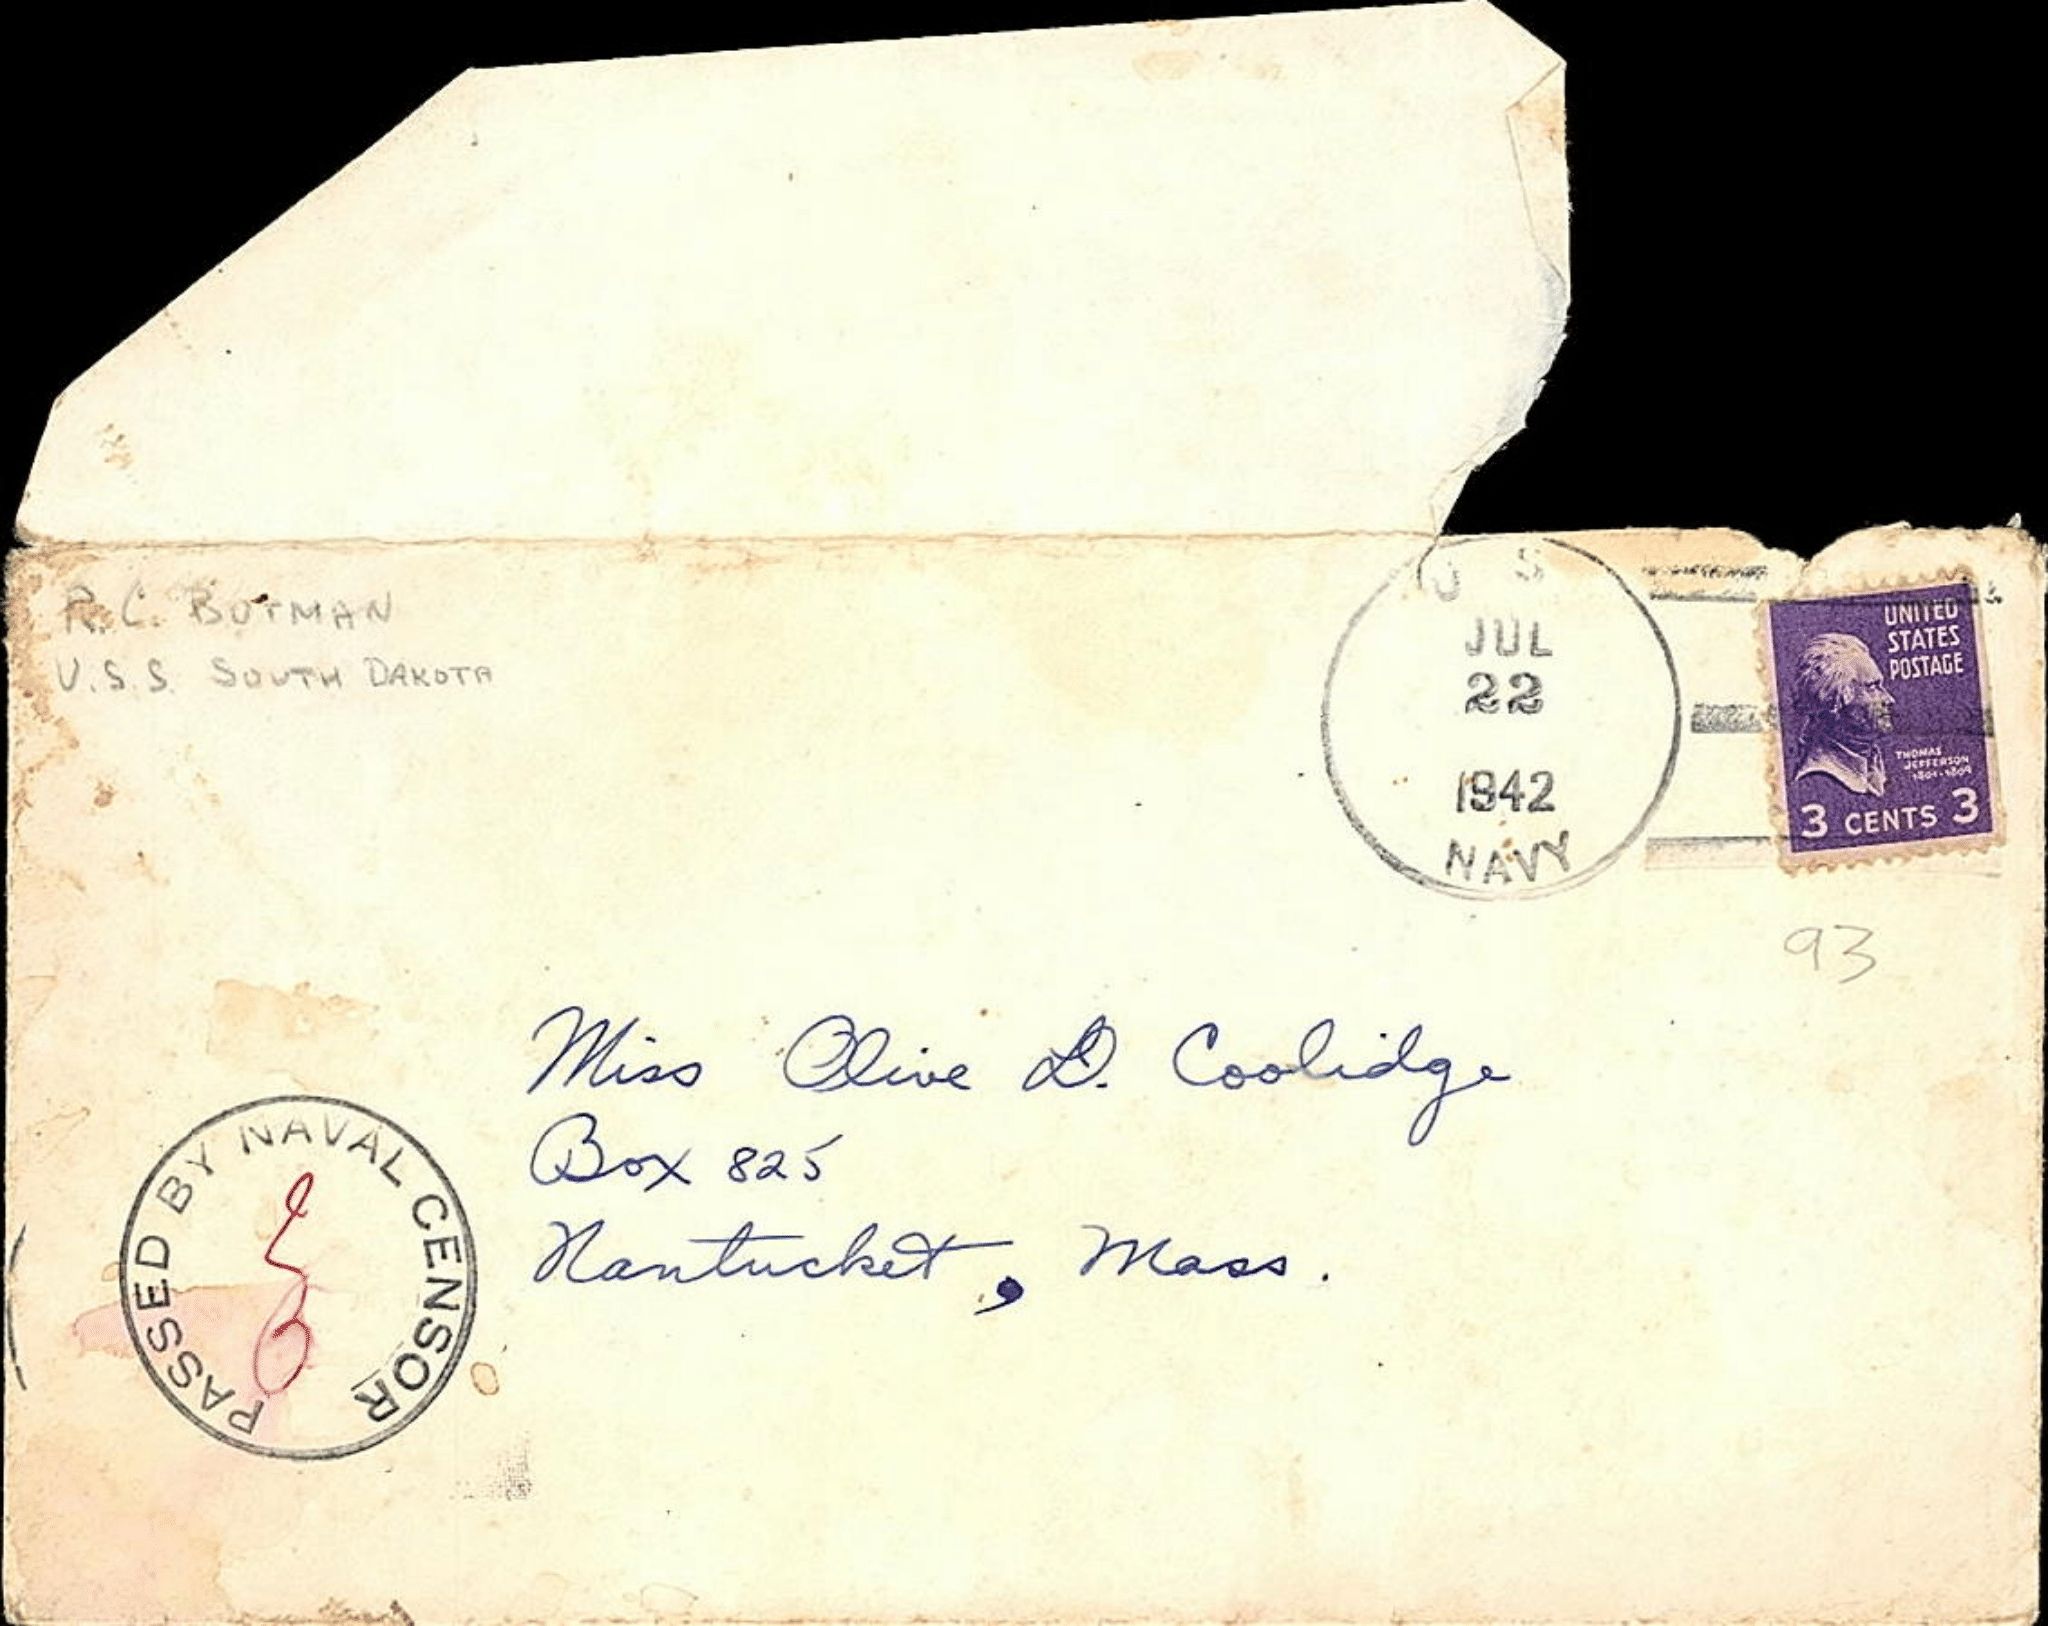 R.C. BUTMAN
U.S.S. SOUTH DAKOTA
U S
JUL
22
1942
NAVY
UNITED
STATES
POSTAGE
THOMAS
JEFFERSON
1801-1809
3 CENTS 3
93
Miss Olive D. Coolidge
Box 825
Nantucket, Mass.
PASSED BY NAVAL CENSOR